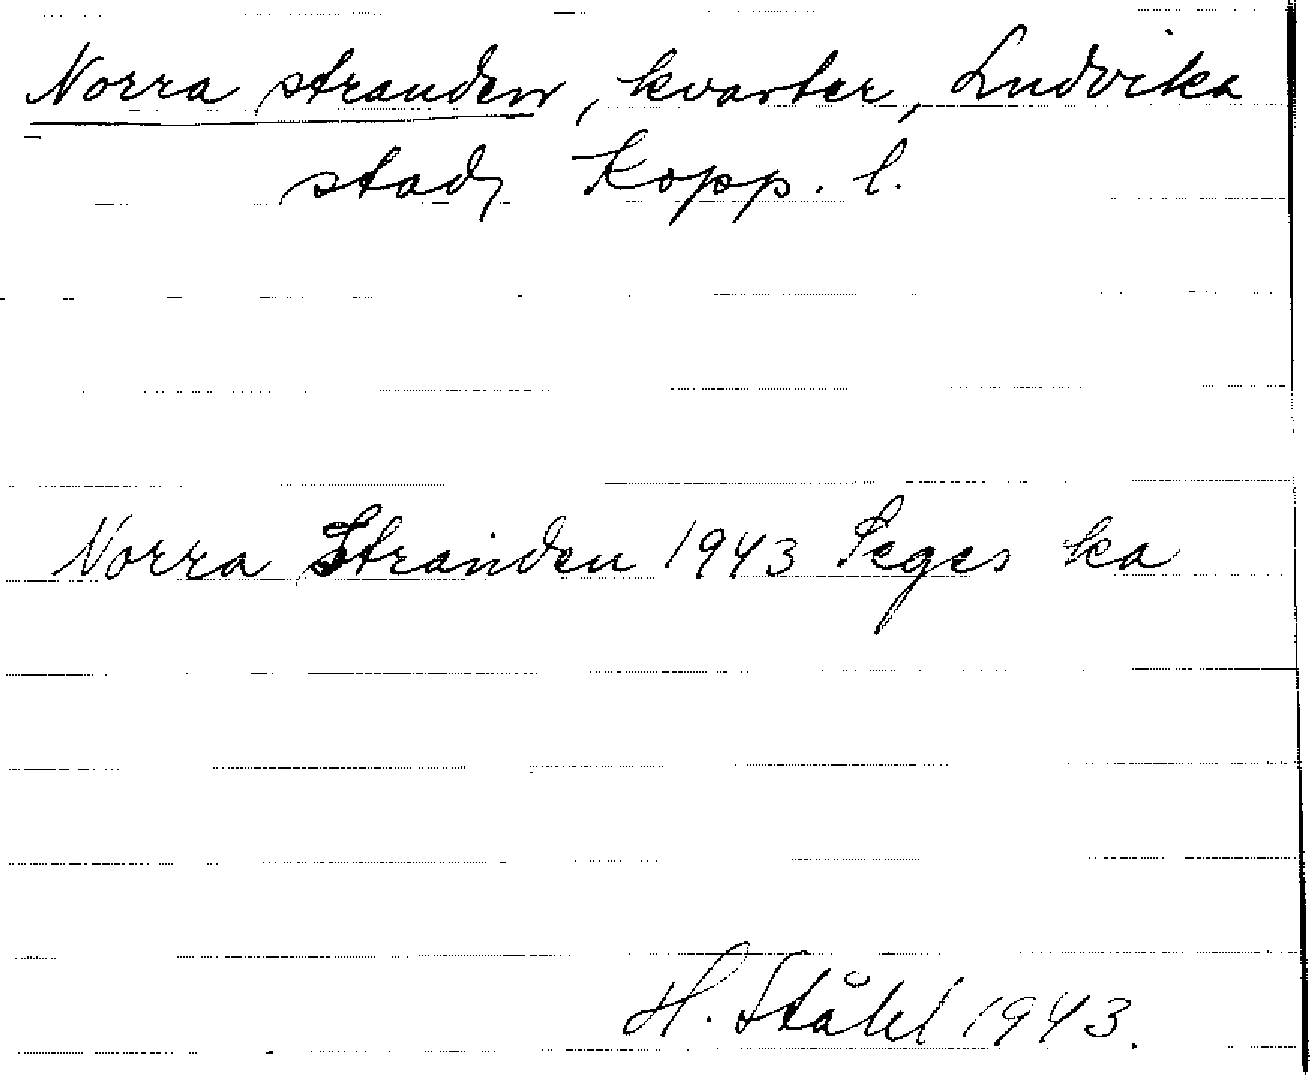 Norra stranden, kvarter, Ludvika
stad, Kopp. l.
Norra Stranden 1943 Seges ka
H. Ståhl 1943.